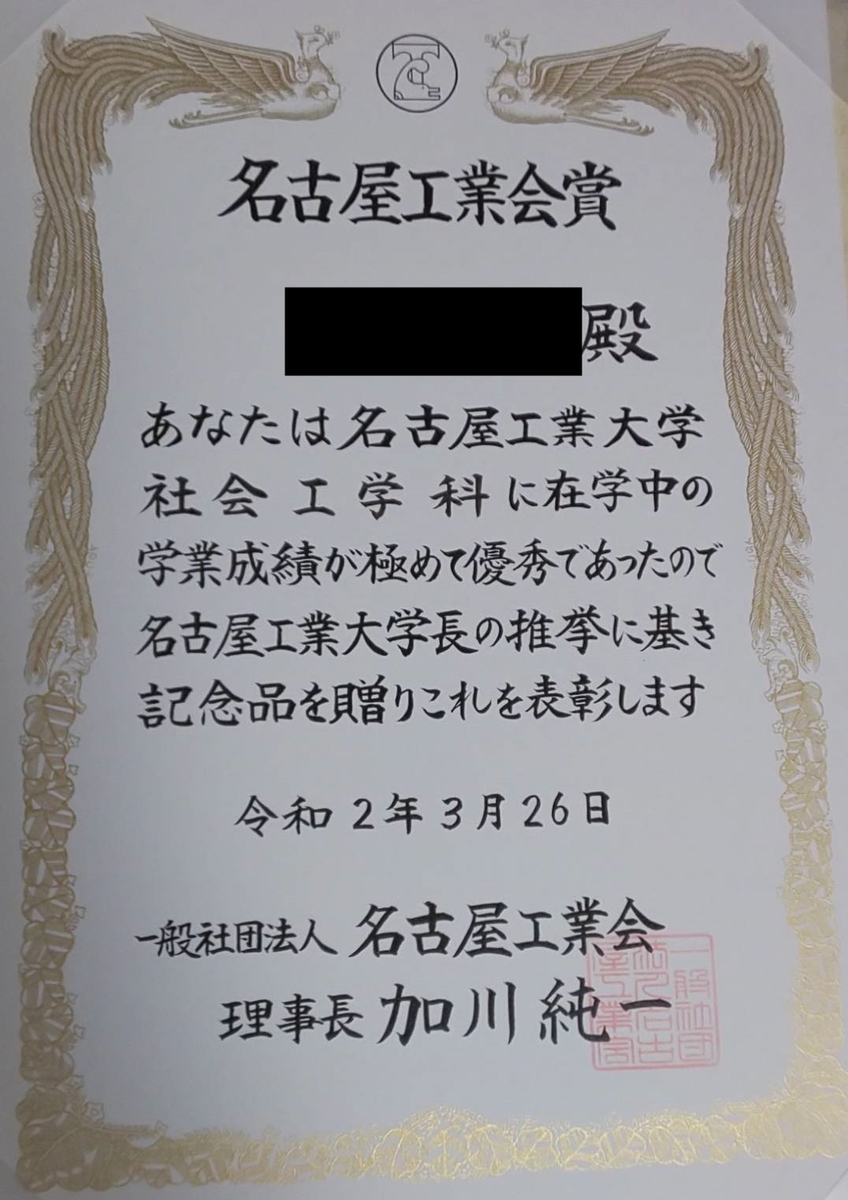 名古屋工業会賞
殿
あなたは名古屋工業大学
社会工学科に在学中の
学業成績が極めて優秀であったので
名古屋工業大学長の推挙に基き
記念品を贈りこれを表彰します
令和2年3月26日
一般社団法人 名古屋工業会
理事長 加川純一